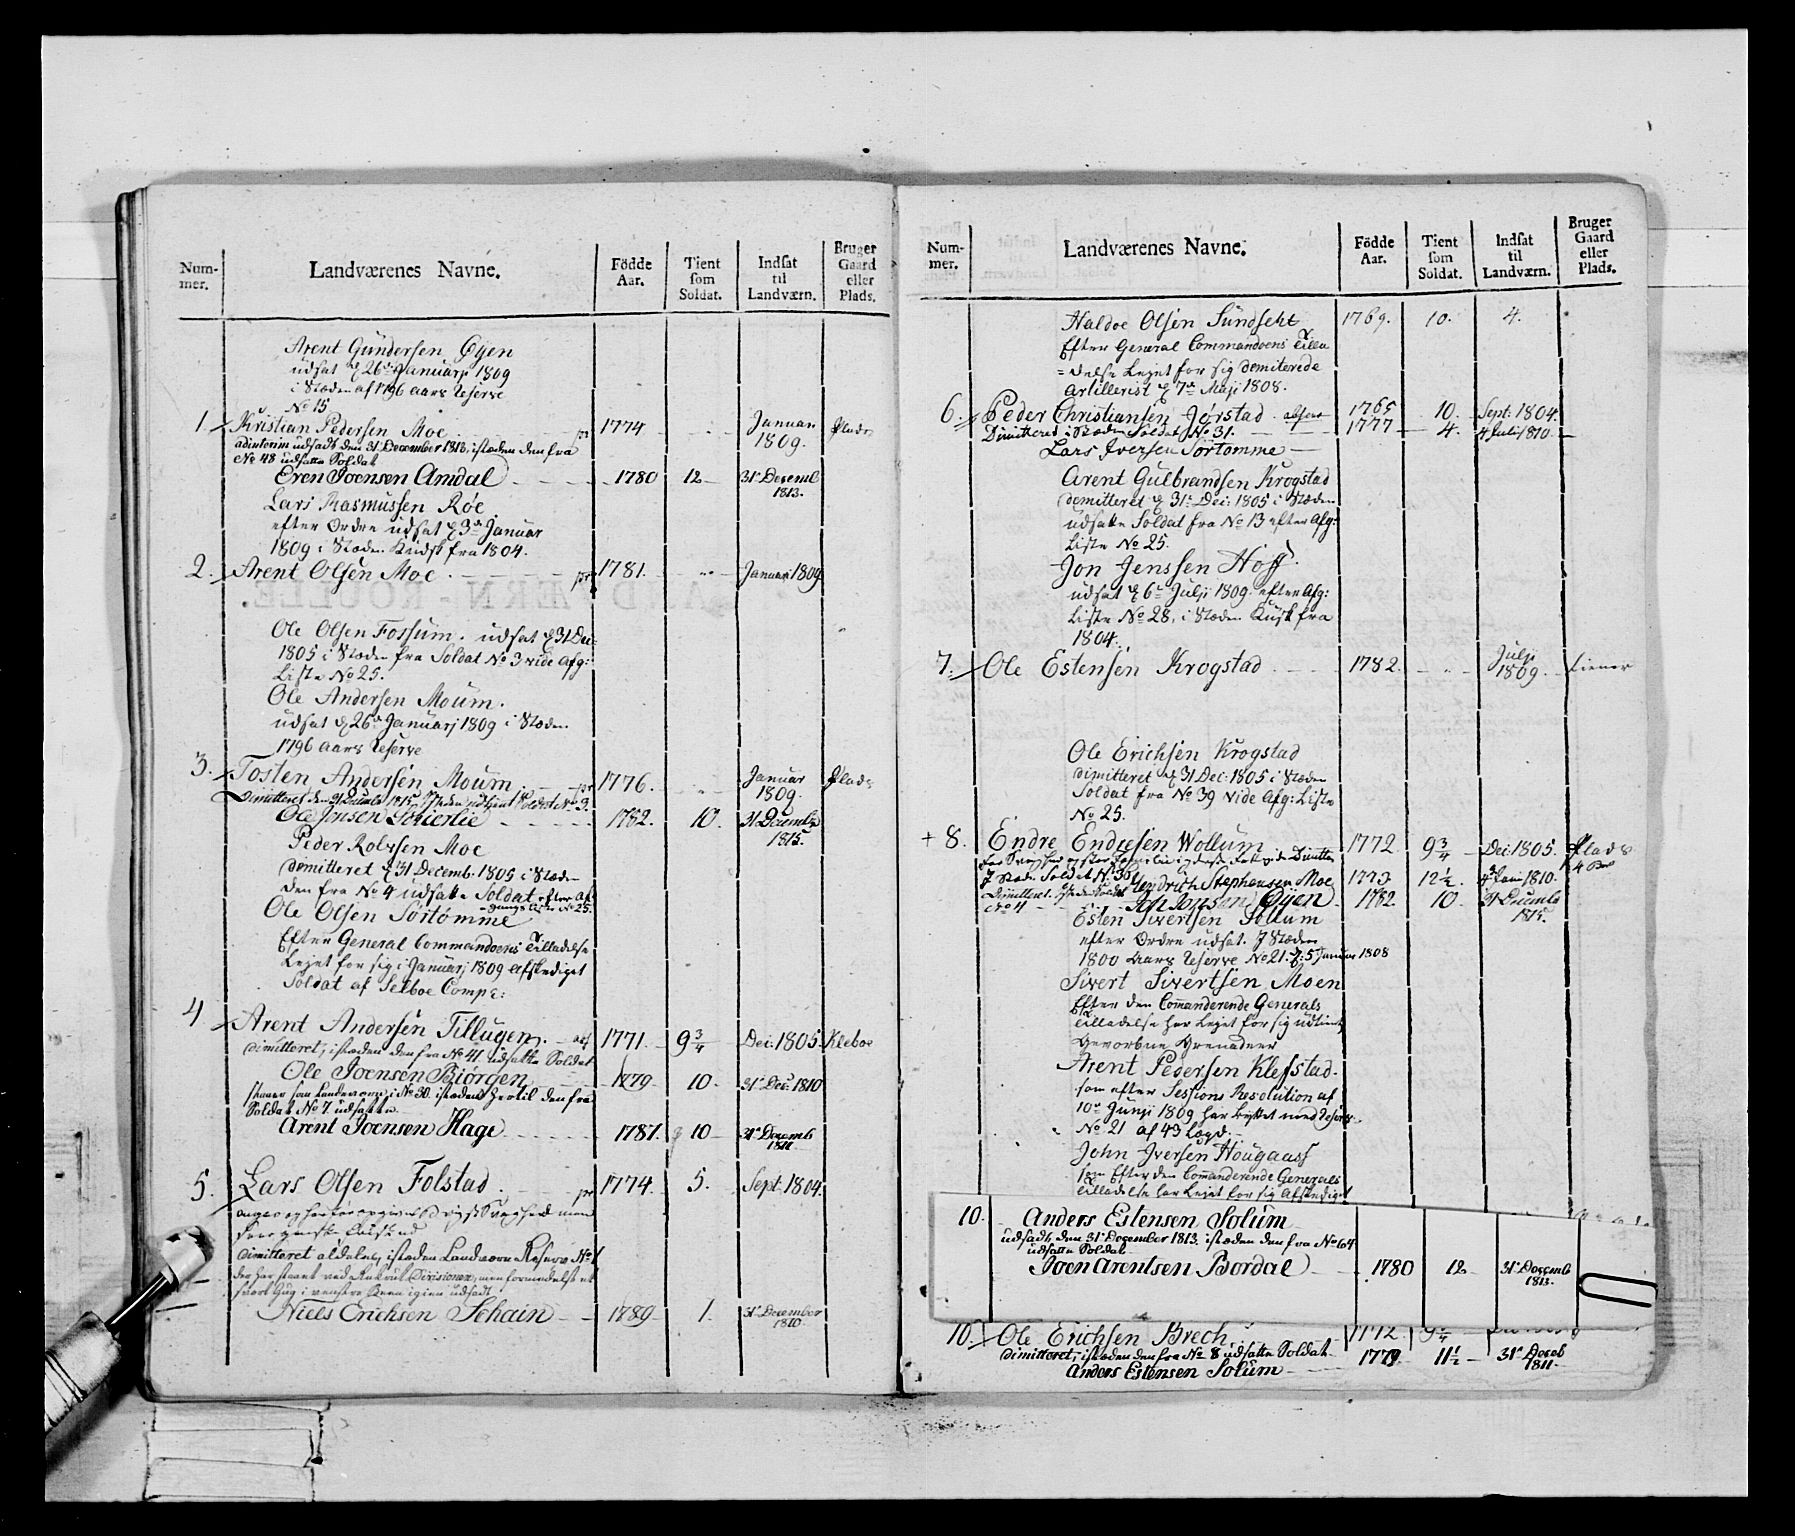 Num-
mer.
Landværenes Navne.
Födde
Aar.
Tient
som
Soldat.
Indsat
til
Landværn.
Bruger
Gaard
eller
Plads.
Arent Gundersen Öyen
udsat d 26de Januarj 1809
i Stæden af 1796 aars Reserve
No 15
1 Kristian Pedersen Moe 1774 Januar 1809. Plads
adinterim udsadt den 31 December 1813, istæden den fra
No 48 udsatte Soldat
Eren Joensen Amdal 1780 12 31 Decembl 1813.
Lars Rasmussen Röe
efter Ordre udsat d 3de Januar
1809 i Stæden Kudsk fra 1804.
2. Arent Olsen Moe 1781. Januar 1809
Ole Olsen Fossum. udsat d 31 De:
1805 i Stæden fra Soldat No 3 vide Afg:
Liste No 25.
Ole Andersen Moum.
udsat d 26de Januarj 1809 i Stæden
1796 aars Reserve
3. Tosten Andersen Moum 1776. Januar 1809. Plads
Dimitteret den 31 Decembr 1815, i Steden udtient Soldat No 3.
Ole Jonsen 1782. 10. 31 Decembr 1815.
Peder Rolvsen Moe
demitteret d 31 Decemb. 1805 i Stæden
den fra No 4 udsatte Soldat efter Af-
gangs Liste No 25.
Ole Olsen Sörtömme
Efter General Commandoens Tilladelse
Lejet for sig i Januarj 1809 afskediget
Soldat af Selboe Comp:
4 Arent Andersen Tillugen. 1771. 9 3/4 Dec: 1805. Kleboe
dimitteret, istæden den fra No 41 udsatte Soldat
Ole Joensen Biörgen 1779 10. 31 Dec: 1810
staaer som Landværn i No 30. istædens hertil den fra
Soldat No 7 udsatte
Arent Joensen Hage 1781. 10 31 Decemb 1811
5. Lars Olsen Folstad 1774. 5. Sept: 1804.
dimitteret aldeles, istæden Landværn Reserv No 1
der har staaet ved Rekrut Divisionen, men formedelst et
svært Hug i venstre Knee igien udsadt
Niels Erichsen Schain 1789 1. 31 December 1810
Num-
mer.
Landværenes Navne.
Födde
Aar.
Tient
som
Soldat.
Indsat
til
Landværn.
Bruger
Gaard
eller
Plads.
Haldoe Olsen Sundseht 1769. 10. 4.
Efter General Commandoens Tilla
=delse Lejet for sig demiterede
Artillerist d 7de Maji 1808.
6. Peder Christiansen Jörstad 1765 10. Sept: 1804.
Dimitteret i Stæden Soldat No 31. 1777 4. 4 Juli 1810
Lars Iversen Sörtömme
Arent Gulbrandsen Krogstad
demitteret d 31 Dec: 1805 i Stæden
udsatte Soldat fra No 13 efter Afg:
Liste No 25.
Jon Jenssen Hoff.
udsat d 6te Julji 1809. efter Afg:
Liste No 28, i Stæden Kusk fra
1804.
7. Ole Estensen Krogstad 1782. Julji 1809. tiener
Ole Erichsen Krogstad
dimitteret d 31 Dec: 1805 i Stæden
Soldat fra No 39 vide Afg: Liste
No 25.
+ 8. Endre Endresen Wollum 1772 9 3/4 Dec: 1805. Plads
J Stæden Soldat No 36 Hendrich Stephensen Moe 1773 12 1/2 4 Juni 1810.
Dimitteret. Steden Soldat
No 4 Jonsen Öyen 1782 10. 31 Decembr 1815.
Esten Sivertsen Sollum
efter Ordre udsat. J Stæden
1800 Aars Reserve No 21. d: 5 Januar 1808
Sivert Sivertsen Moen
Efter den Commanderende Generals
Tilladelse har Lejet for sig udtient
Hevorbne Grenadeer
Arent Pedersen Klefstad.
som efter Sessions Resolution af
10de Junji 1809 har byttet med Reserv
No 21 af 43 Lægd.
John Iversen Hougaass
som Efter den Commanderende Generals
Tilladelse har Lejet for sig Afskediget
10. Anders Estensen Solum
udsadt, den 31 December 1813. istæden den fra No 64
udsatte Soldat
Joen Arentsen Bordal 1780 12 31 Decemb 1813.
10. Ole Erichsen Brech 1772 9 3/4
dimitteret, istæden den fra No 8 udsatte Soldat
Anders Estensen Solum 1779. 11 1/2 31 Deceb 1811.